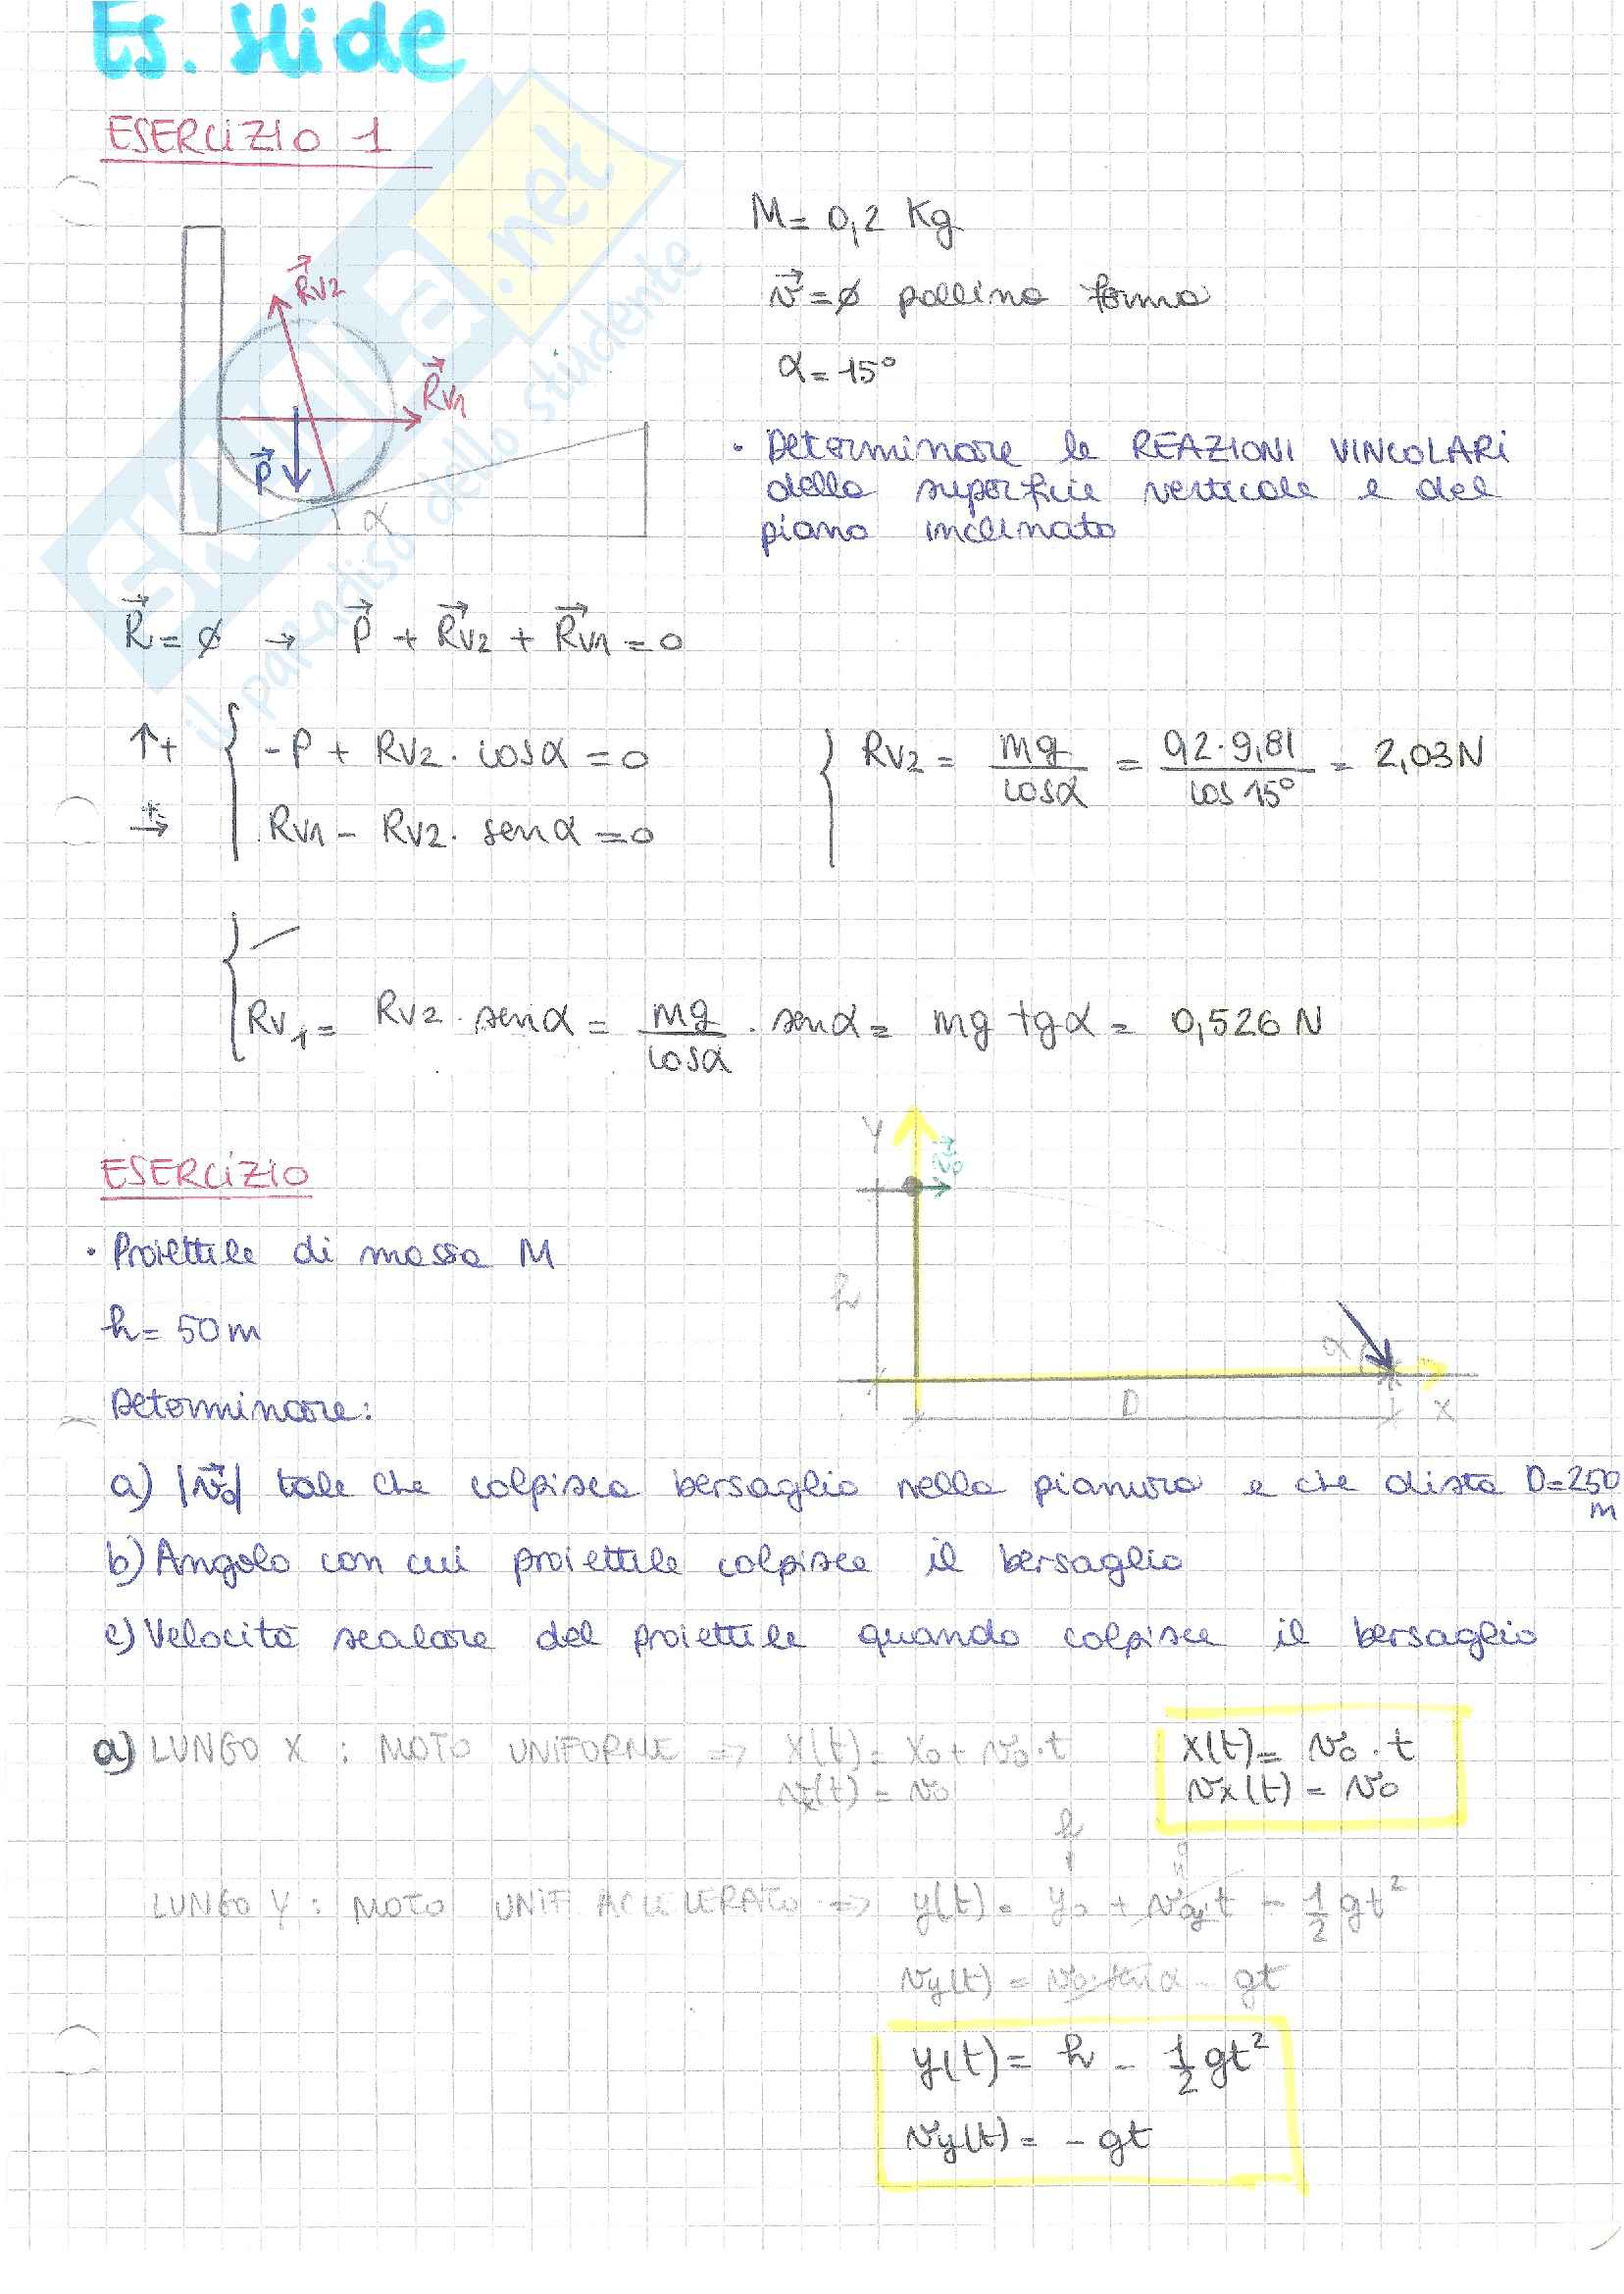 Es. slide
ESERCIZIO 1
M = 0,2 Kg
v⃗ = ∅ pallina ferma
α = 15°
R⃗v2
R⃗v1
P⃗
α
• Determinare le REAZIONI VINCOLARI
della superficie verticale e del
piano inclinato
SKUOLA.net
il paradiso dello studente
R⃗ = ∅ → P⃗ + R⃗v2 + R⃗v1 = 0
↑+ { -P + Rv2 · cosα = 0
→+ Rv1 - Rv2 · senα = 0
{ Rv2 = mg/cosα = 0,2·9,81/cos 15° = 2,03 N
{ Rv1 = Rv2 · senα = mg/cosα · senα = mg tgα = 0,526 N
ESERCIZIO
y
v⃗0
h
α
D
x
• Proiettile di massa M
h = 50 m
Determinare:
a) |v⃗0| tale che colpisca bersaglio nella pianura e che dista D=250 m
b) Angolo con cui proiettile colpisce il bersaglio
c) Velocità scalare del proiettile quando colpisce il bersaglio
a) LUNGO X : MOTO UNIFORME ⇒ x(t) = x0 + v0·t
vx(t) = v0
x(t) = v0 · t
vx(t) = v0
h
0
LUNGO Y : MOTO UNIF ACCELERATO ⇒ y(t) = y0 + v0y t - 1/2 gt²
vy(t) = v0·senα - gt
y(t) = h - 1/2 gt²
vy(t) = - gt